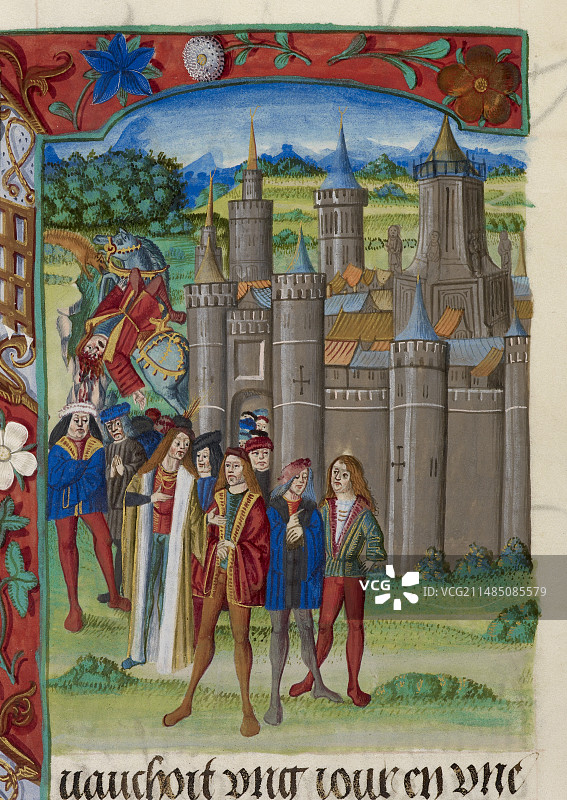 VCG ID:VCG211485085579
vauchoit vng iour en vne